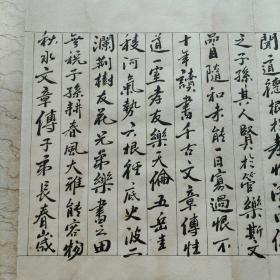 閒道德根
之子孫其人賢於管樂斯又
品目隨和未能一日寡過恨不
十年讀書千古文章傳性
道一室孝友樂天倫五岳圭
稜河氣勢六根經底史波二
瀾荊樹友花兄弟樂書之田
無稅子孫耕春風大雅能容物
秋水文章傳子弟長春歲